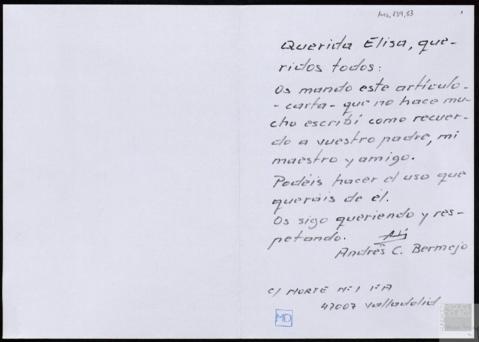 Ms.139,53
Querida Elisa, que-
ridos todos:
Os mando este artículo-
-carta- que no hace mu-
cho escribí como recuer-
do a vuestro padre, mi
maestro y amigo.
Podéis hacer el uso que
queráis de él.
Os sigo queriendo y res-
petando.
Andrés C. Bermejo
c/ NORTE Nº1 1ºA
47007 Valladolid
MD